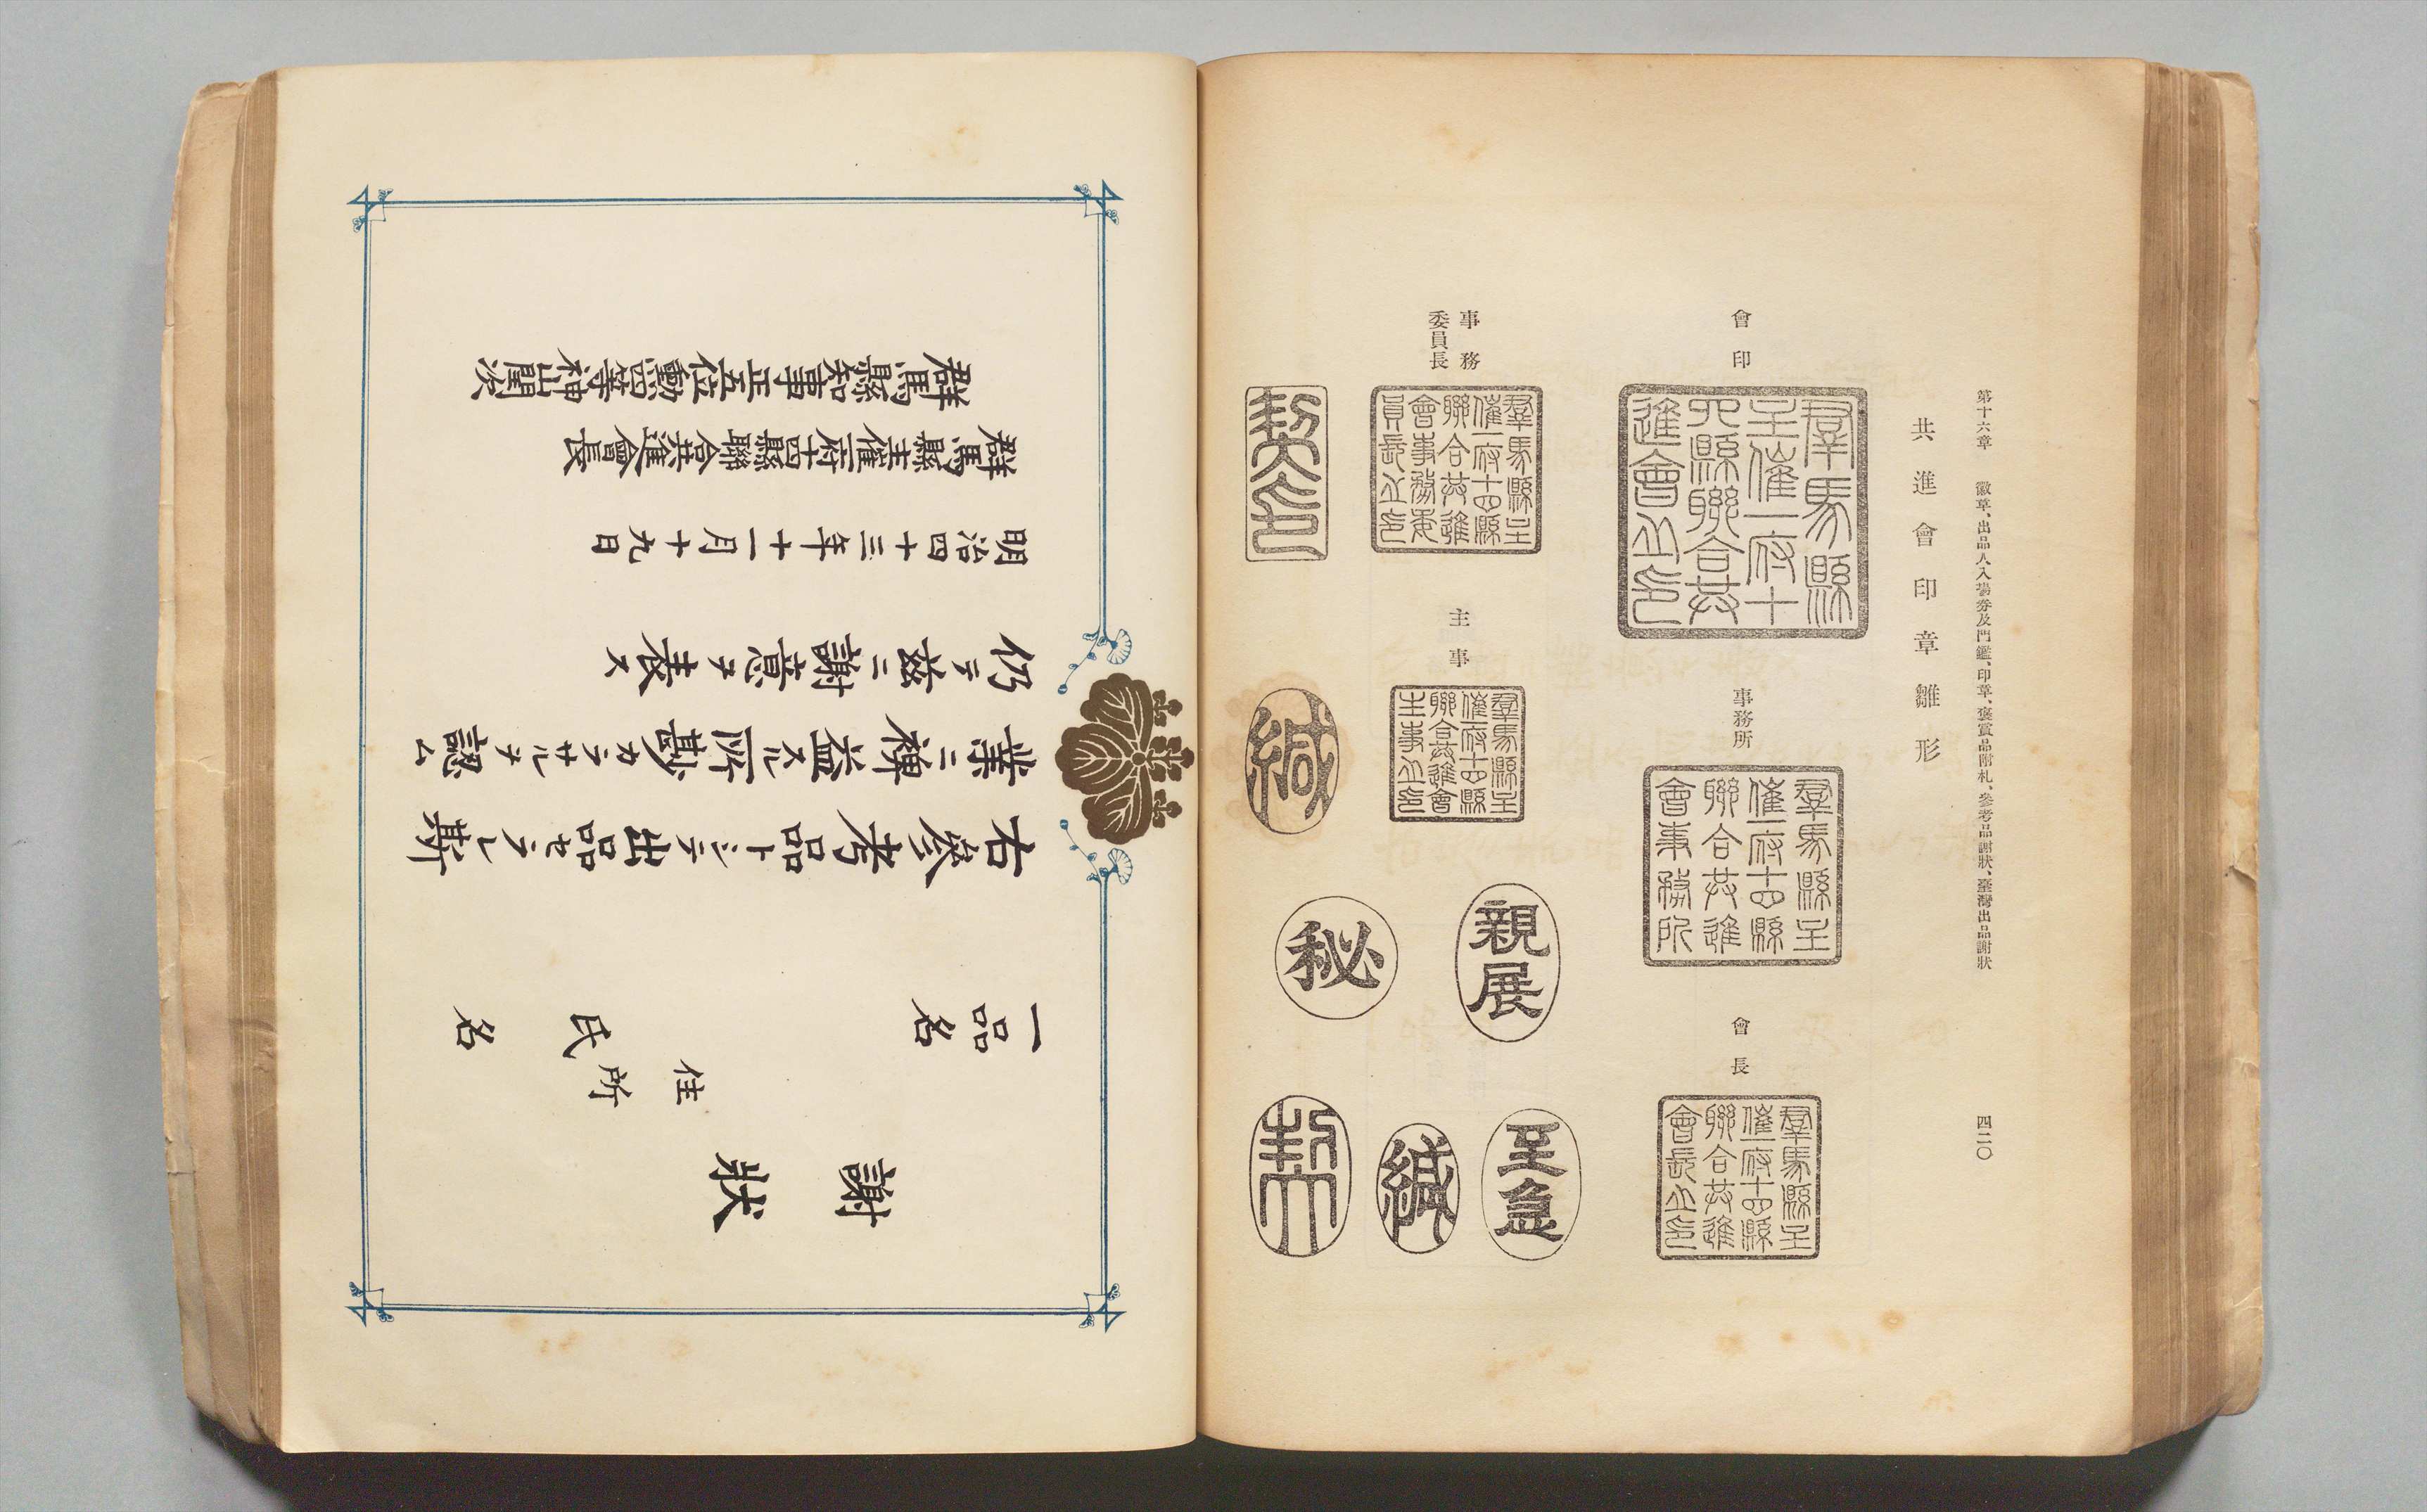 第十六章 徽章、出品人入場券及門鑑、印章、褒賞品附札、參考品謝狀、臺灣出品謝狀
四二〇
共進會印章雛形
會印
羣馬縣
主催一府十
四縣聯合共
進會之印
事務所
羣馬縣主
催一府十四縣
聯合共進
會事務所
會長
羣馬縣主
催一府十四縣
聯合共進
會長之印
事務
委員長
羣馬縣主
催一府十四縣
聯合共進
會事務委
員長之印
主事
羣馬縣主
催一府十四縣
聯合共進會
主事之印
親展
至急
秘
緘
契印
緘
契
謝狀
一品名
住所
氏名
右參考品トシテ出品セラレ斯
業ニ裨益スル所尠カラサルヲ認ム
仍テ茲ニ謝意ヲ表ス
明治四十三年十一月十九日
群馬縣主催一府十四縣聯合共進會長
群馬縣知事正五位勳四等神山閏次